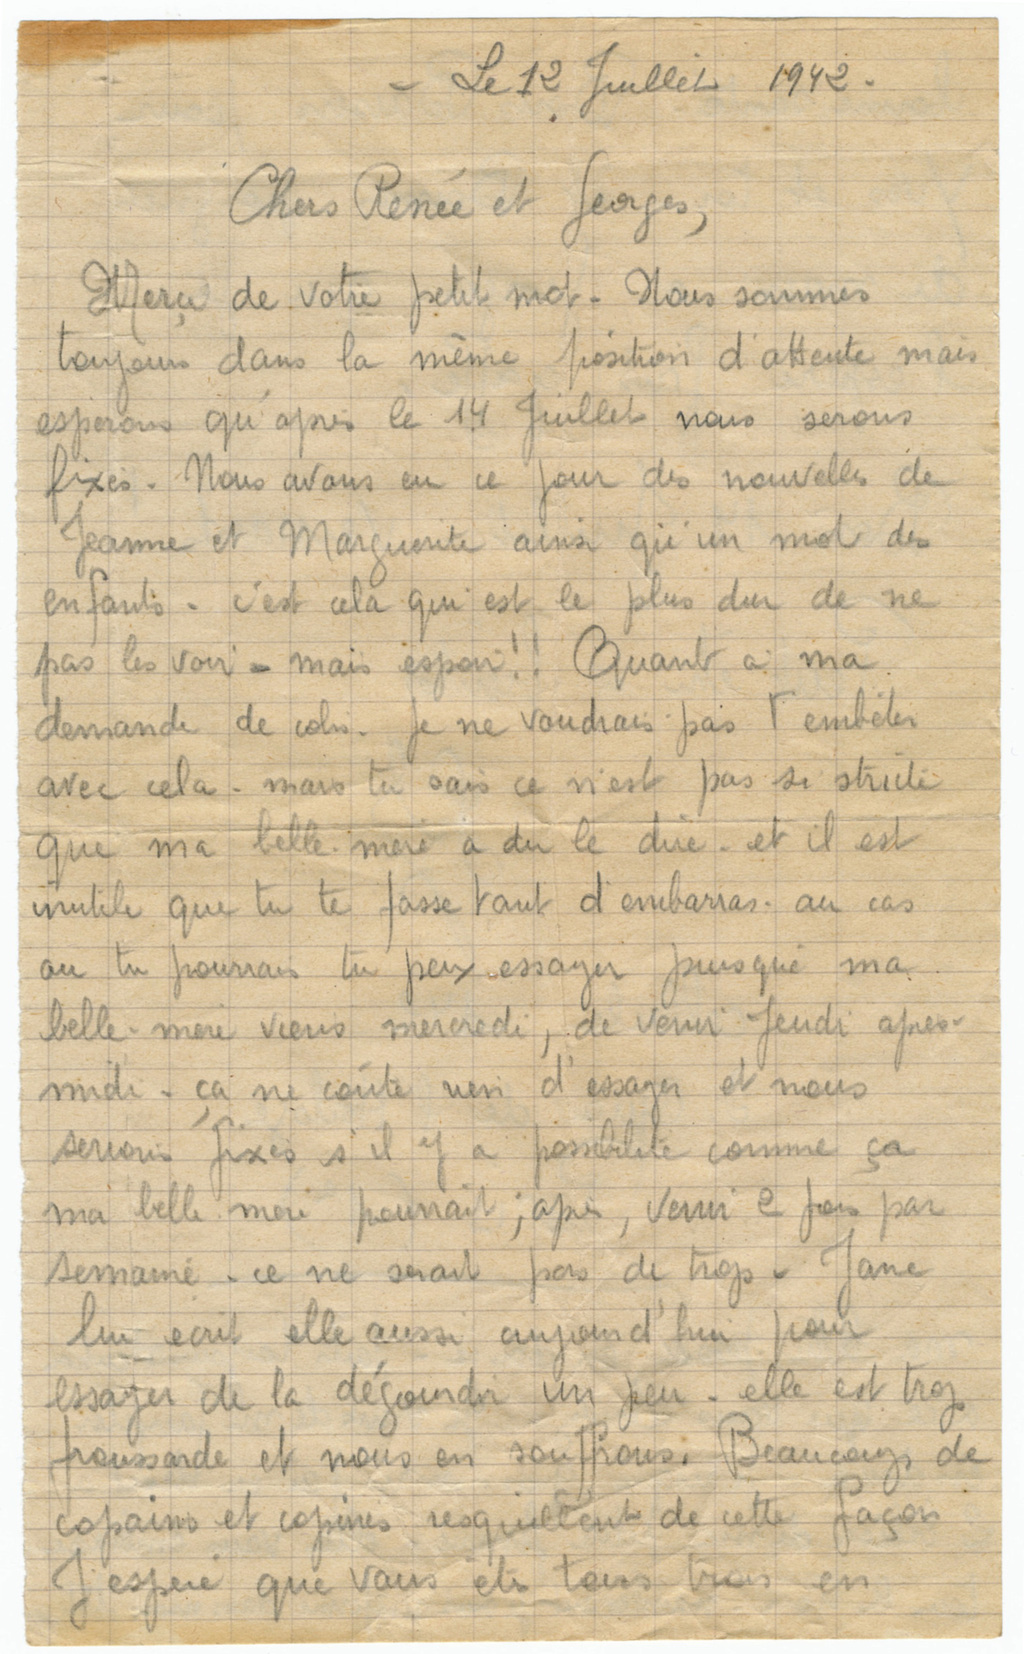 - Le 12 Juillet 1942.
Chers Renée et Georges,
Merci de votre petit mot. Nous sommes
toujours dans la même position d'attente mais
esperons qu'apres le 14 Juillet nous serons
fixés. Nous avons eu ce jour des nouvelles de
Jeanne et Marguerite ainsi qu'un mot des
enfants. c'est cela qui est le plus dur de ne
pas les voir - mais espoir!! Quant a ma
demande de colis. Je ne voudrais pas t'embêter
avec cela. mais tu sais ce n'est pas si stricte
que ma belle-mere a du le dire. et il est
inutile que tu te fasse tant d'embarras. au cas
ou tu pourrais tu peux essayer puisque ma
belle-mere viens mercredi, de venir Jeudi apres-
midi. ça ne coûte rien d'essayer et nous
serions fixés s'il y a possibilité comme ça
ma belle mere pourrait ; apres, venir 2 fois par
semaine. ce ne serait pas de trop. Jane
lui ecrit elle aussi aujourd'hui pour
essayer de la dégourdir un peu. elle est trop
froussarde et nous en souffrons. Beaucoup de
copains et copines resquillent de cette façon
J'espere que vous etes tous trois en